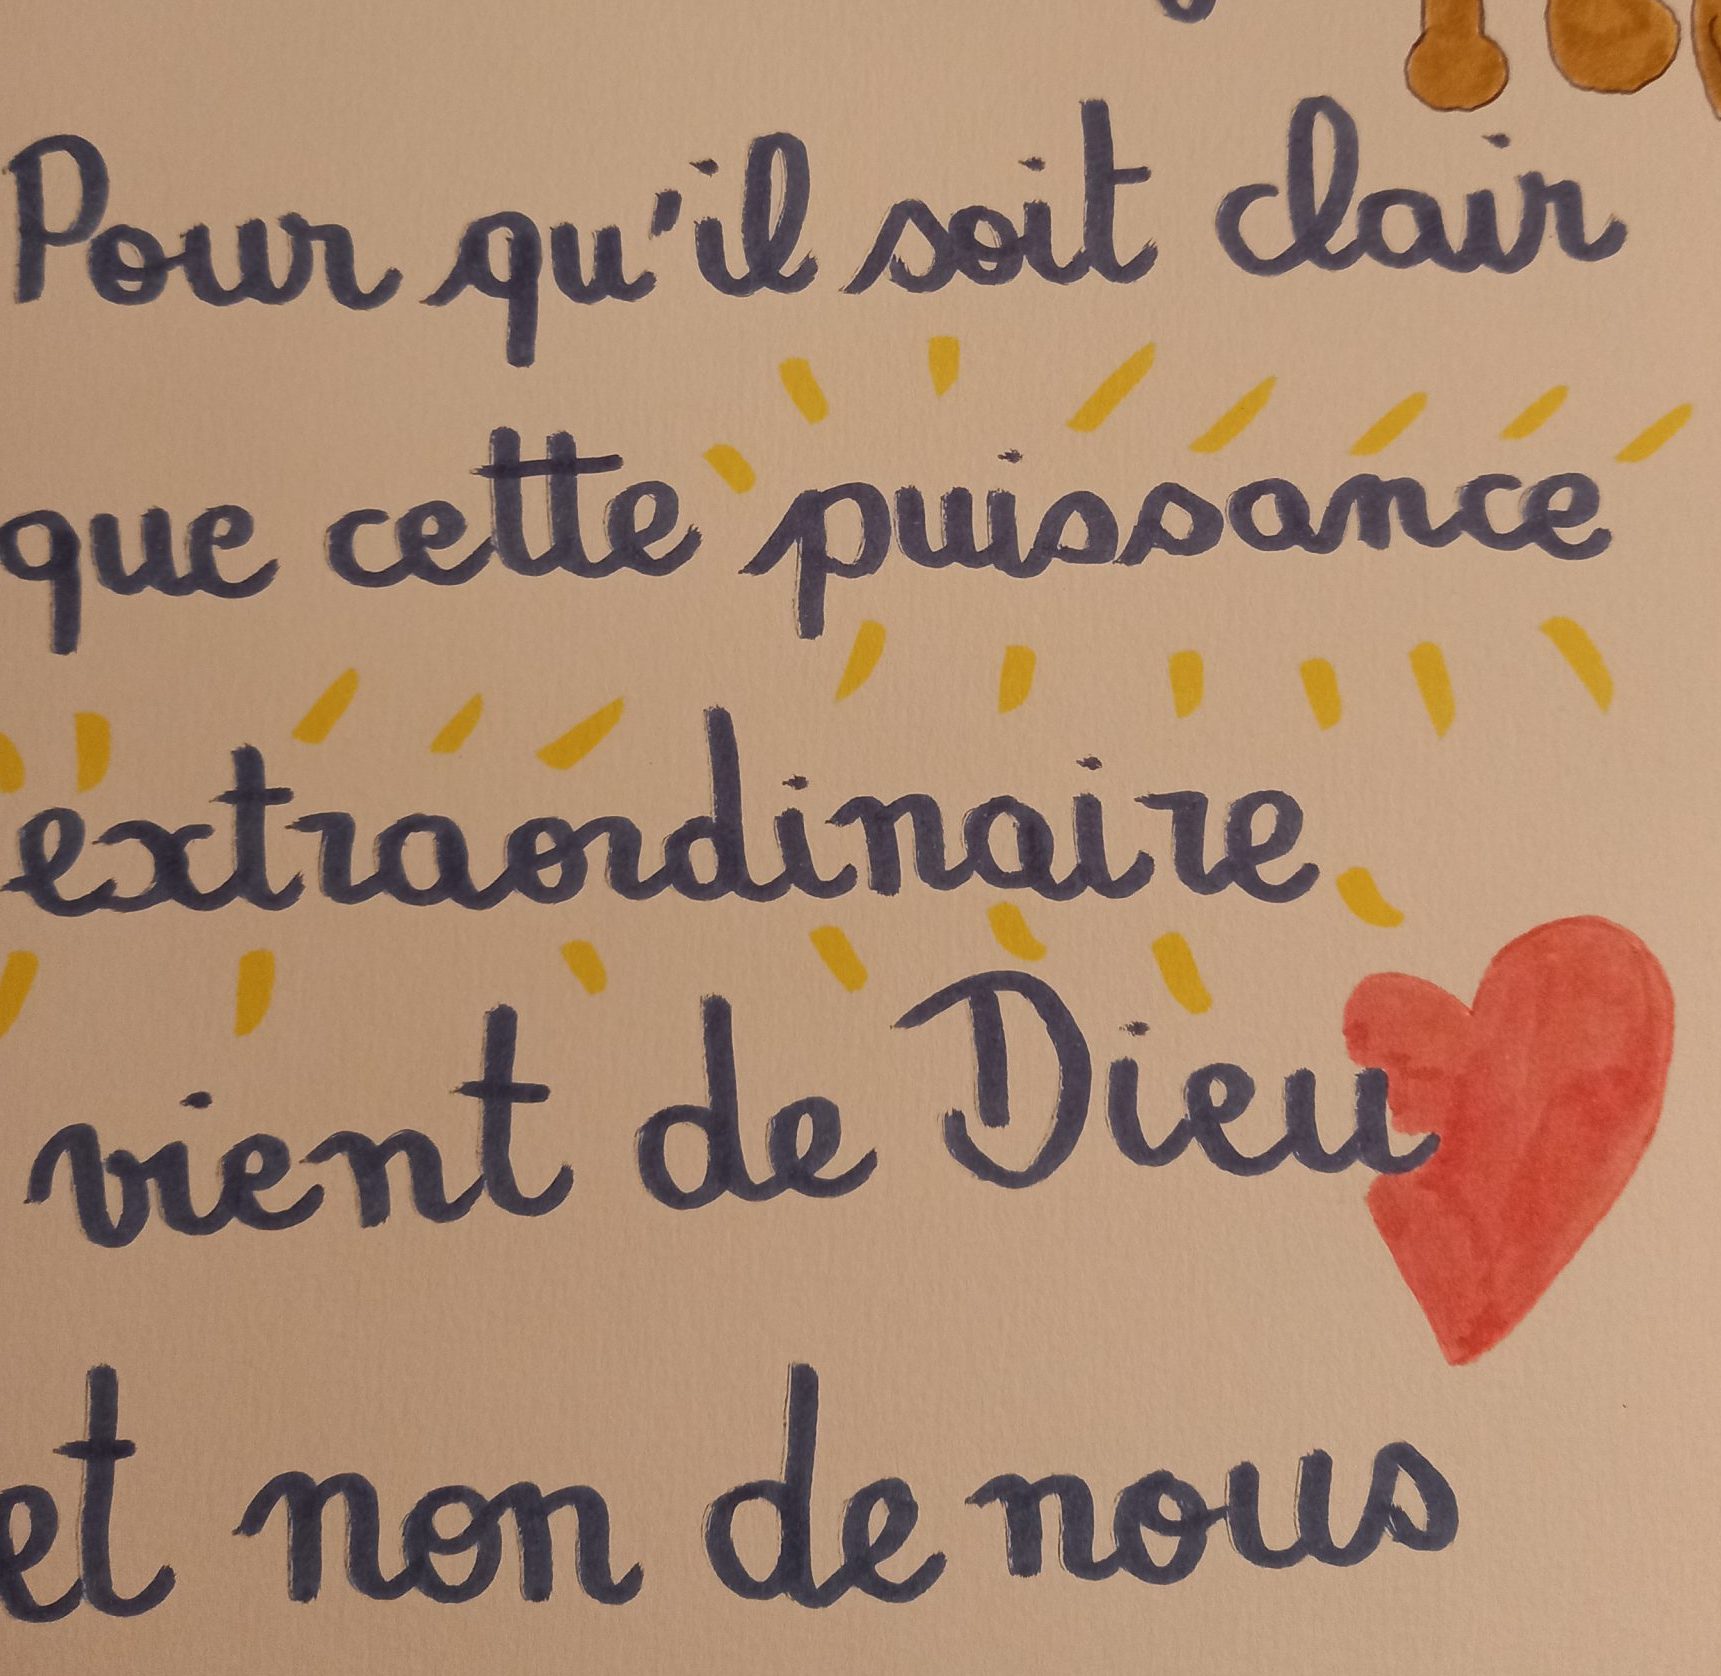 Pour qu'il soit clair
que cette puissance
extraordinaire
vient de Dieu
et non de nous